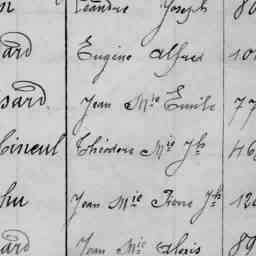 n Léandre Joseph 80
ard Eugène Alfred 10
sard Jean Mie Emile 77
Cineul Théodore Mie Jh 46
hu Jean Mie Pierre Jh 12
ard Jean Mie Alexis 89